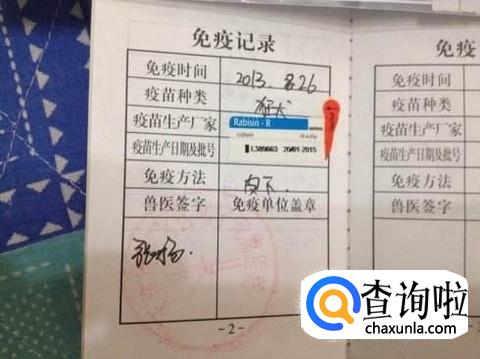 免疫记录
免疫时间 2013.8.26
疫苗种类 狂犬
疫苗生产厂家 Rabisin - R
疫苗生产日期及批号 L389663 20/01-2015
免疫方法 皮下.
兽医签字 免疫单位盖章
- 2 -
免
免疫时间
疫苗种类
疫苗生产厂家
疫苗生产日期及批号
免疫方法
兽医签字
查询啦
chaxunla.com